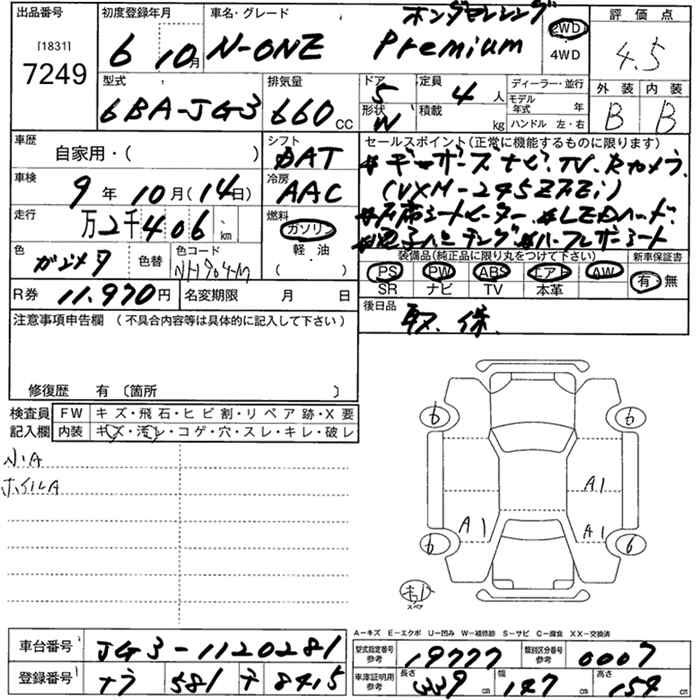 出品番号 初度登録年月 車名・グレード ホンダセンシング 2WD 評価点
[1831] 6 10月 N-ONE Premium 4WD 4.5
7249
型式 排気量 ドア 定員 ディーラー・並行 外装 内装
6BA-JG3 660 CC 5 4人 モデル年式 年 B B
形状 W 積載 kg ハンドル 左・右
車歴 シフト セールスポイント(正常に機能するものに限ります)
自家用・( ) AT #ギャザズナビ.TV.Rカメラ.
車検 冷房 (VXM-245ZFEi)
9年10月(14日) AAC #前席シートヒーター #LEDヘッド.
走行 燃料
万2千406km ガソリン
色 色替 色コード 軽・油
ガンメタ NH904M ( )
装備品(純正品に限り丸をつけて下さい) 新車保証書
PS PW ABS エアB AW 有・無
SR ナビ TV 本革
R券 11.970円 名変期限 月 日
後日品 取.保.
注意事項申告欄 (不具合内容等は具体的に記入して下さい)
修復歴 有 〔箇所 〕
検査員 FW キズ・飛石・ヒビ割・リペア跡・X要
記入欄 内装 キズ・汚レ・コゲ・穴・スレ・キレ・破レ
ホイルA
6 6
A1
A1 A1
6 6
スペア
A-キズ E-エクボ U-凹み W-補修跡 S-サビ C-腐食 XX-交換済
車台番号 JG3-1120281 型式指定番号 参考 19777 類別区分番号 参考 0007
登録番号 ナラ 581 テ 8415 車庫証明用 参考 長さ 339cm 幅 147cm 高さ 154cm